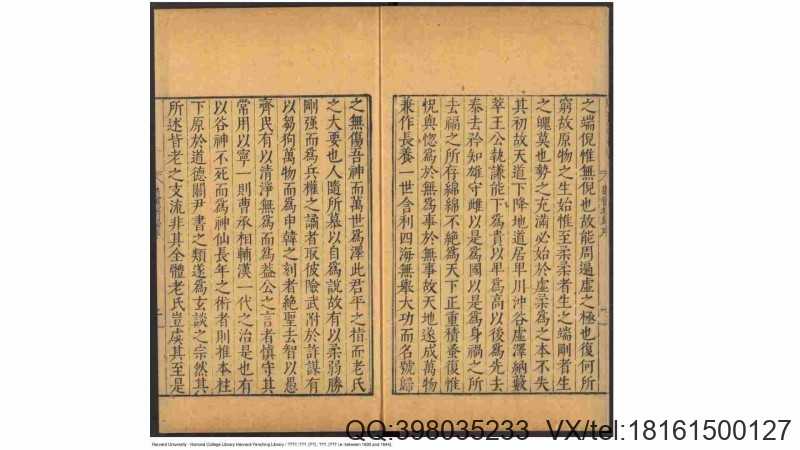 之端倪惟無倪也故能周遍虛之極也復何所
窮故原物之生始惟至柔柔者生之端剛者生
之魄莫也勢之充滿必始於虛柔為之本不失
其初故天道下降地道居卑川沖谷虛澤納藪
萃王公執謙能下為貴以卑為高以後為先去
泰去矜知雄守雌以是為國以是為身禍之所
去福之所存綿綿不絕為天下正重積蚤復惟
怳與惚為於無為事於無事故天地遂成萬物
兼作長養一世含利四海無眾大功而名號歸
之無傷吾神而萬世為澤此君平之指而老氏
之大要也人隨所慕以自為說故有以柔弱勝
剛强而為兵權之譎者取彼險武附於詐謀有
以芻狗萬物而為申韓之刻者絕聖去智以愚
齊民有以清淨無為而為葢公之言者慎守其
常用以寧一則曹丞相輔漢一代之治是也有
以谷神不死而為神仙長年之術者則推本柱
下原於道德關尹書之類遂為玄談之宗然其
所述皆老之支流非其全體老氏豈虞其至是
QQ:398035233 VX/tel:18161500127
Harvard University - Harvard College Library Harvard-Yenching Library /